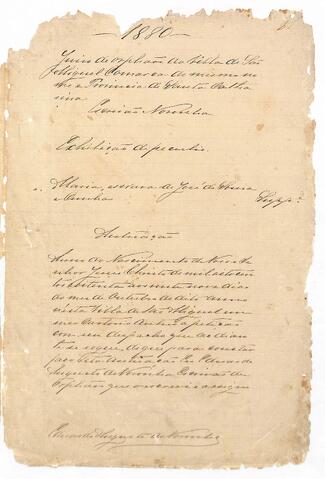 1880
Juizo de orphãos da Villa de São
Miguel Comarca do mesmo no
me e Provincia de Santa Catha
rina
Escrivão Noronha
Exhibição de peculio.
Maria, escrava de José de Souza
e Cunha Supp.e
Autuação
Anno do Nascimento de Nosso Se
nhor Jesus Christo de mil oito cen
tos e oitenta aos nove dias
do mez de Outubro do dito anno
nesta Villa de São Miguel em
meu Cartorio autuei a petição
com seu despacho que ao dian
te se segue, do que para constar
faço esta autuação Eu Eduardo
Augusto de Noronha Escrivão de
Orphãos que o escrevi e assigno
Eduardo Augusto de Noronha